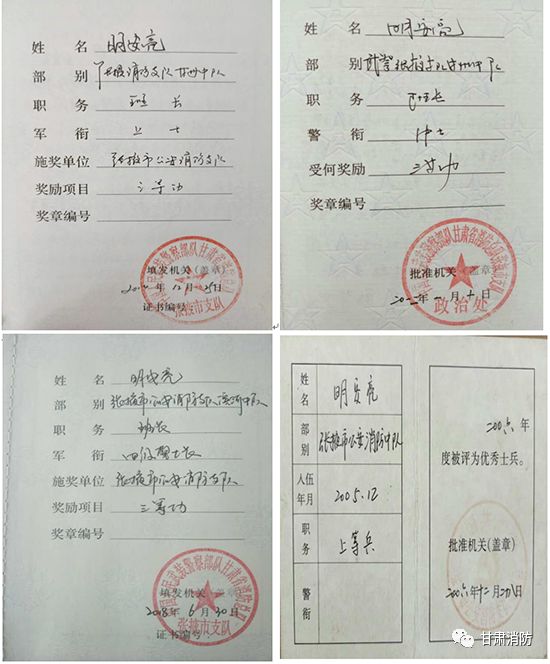 姓 名 明安亮
部 别 张掖消防支队甘州中队
职 务 班长
军 衔 上士
施奖单位 张掖市公安消防支队
奖励项目 三等功
奖章编号
填发机关(盖章)
年12月25日
证书编号:
张掖市支队
姓 名 明安亮
部 别 武警张掖支队甘州中队
职 务 班长
警 衔 中士
受何奖励 三等功
奖章编号
批准机关(盖章)
年 月 日
政治处
姓 名 明安亮
部 别 张掖市公安消防支队滨河中队
职 务 班长
军 衔 四级警士长
施奖单位 张掖市公安消防支队
奖励项目 三等功
奖章编号
填发机关(盖章)
2018年6月30日
证书编号:
张掖市支队
姓名 明安亮
部别 张掖市公安消防中队
入伍年月 2005.12
职务 上等兵
警衔
2006年
度被评为优秀士兵。
批准机关(盖章)
2006年十二月二十八日
甘肃消防